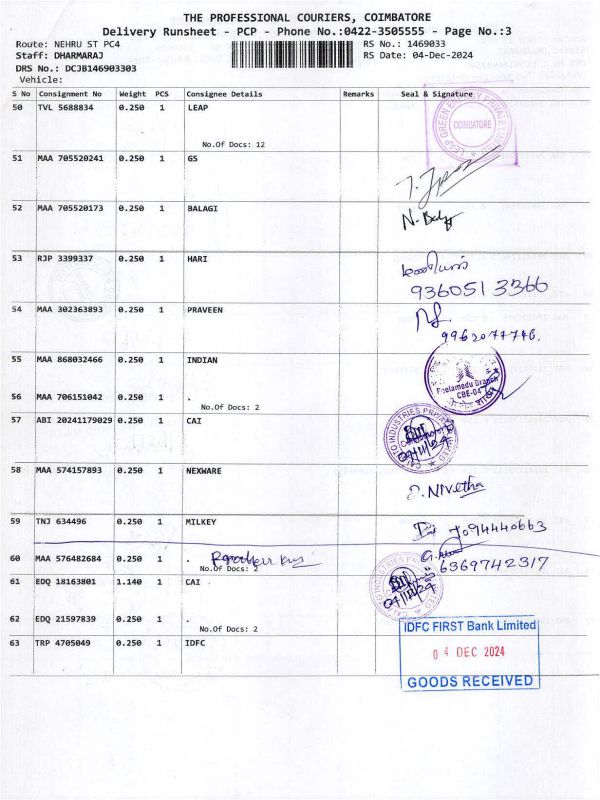 THE PROFESSIONAL COURIERS, COIMBATORE
Delivery Runsheet - PCP - Phone No.:0422-3505555 - Page No.:3
Route: NEHRU ST PC4 RS No.: 1469033
Staff: DHARMARAJ RS Date: 04-Dec-2024
DRS No.: DCJB146903303
Vehicle:
S No Consignment No Weight PCS Consignee Details Remarks Seal & Signature
50 TVL 5688834 0.250 1 LEAP
LEAP GREEN ENERGY PRIVATE
COIMBATORE
No.Of Docs: 12
51 MAA 705520241 0.250 1 GS
52 MAA 705520173 0.250 1 BALAGI
53 RJP 3399337 0.250 1 HARI
9360513366
54 MAA 302363893 0.250 1 PRAVEEN
9962077746.
55 MAA 868032466 0.250 1 INDIAN
Peelamedu Branch
CBE-04
56 MAA 706151042 0.250 1 .
No.Of Docs: 2
57 ABI 20241179029 0.250 1 CAI
INDUSTRIES PRIVATE
58 MAA 574157893 0.250 1 NEXWARE
D. Nivetha
59 TNJ 634496 0.250 1 MILKEY
7094440663
60 MAA 576482684 0.250 1 .
No.Of Docs: 2
6369742317
61 EDQ 18163801 1.140 1 CAI
62 EDQ 21597839 0.250 1 .
No.Of Docs: 2
63 TRP 4705049 0.250 1 IDFC
IDFC FIRST Bank Limited
04 DEC 2024
GOODS RECEIVED